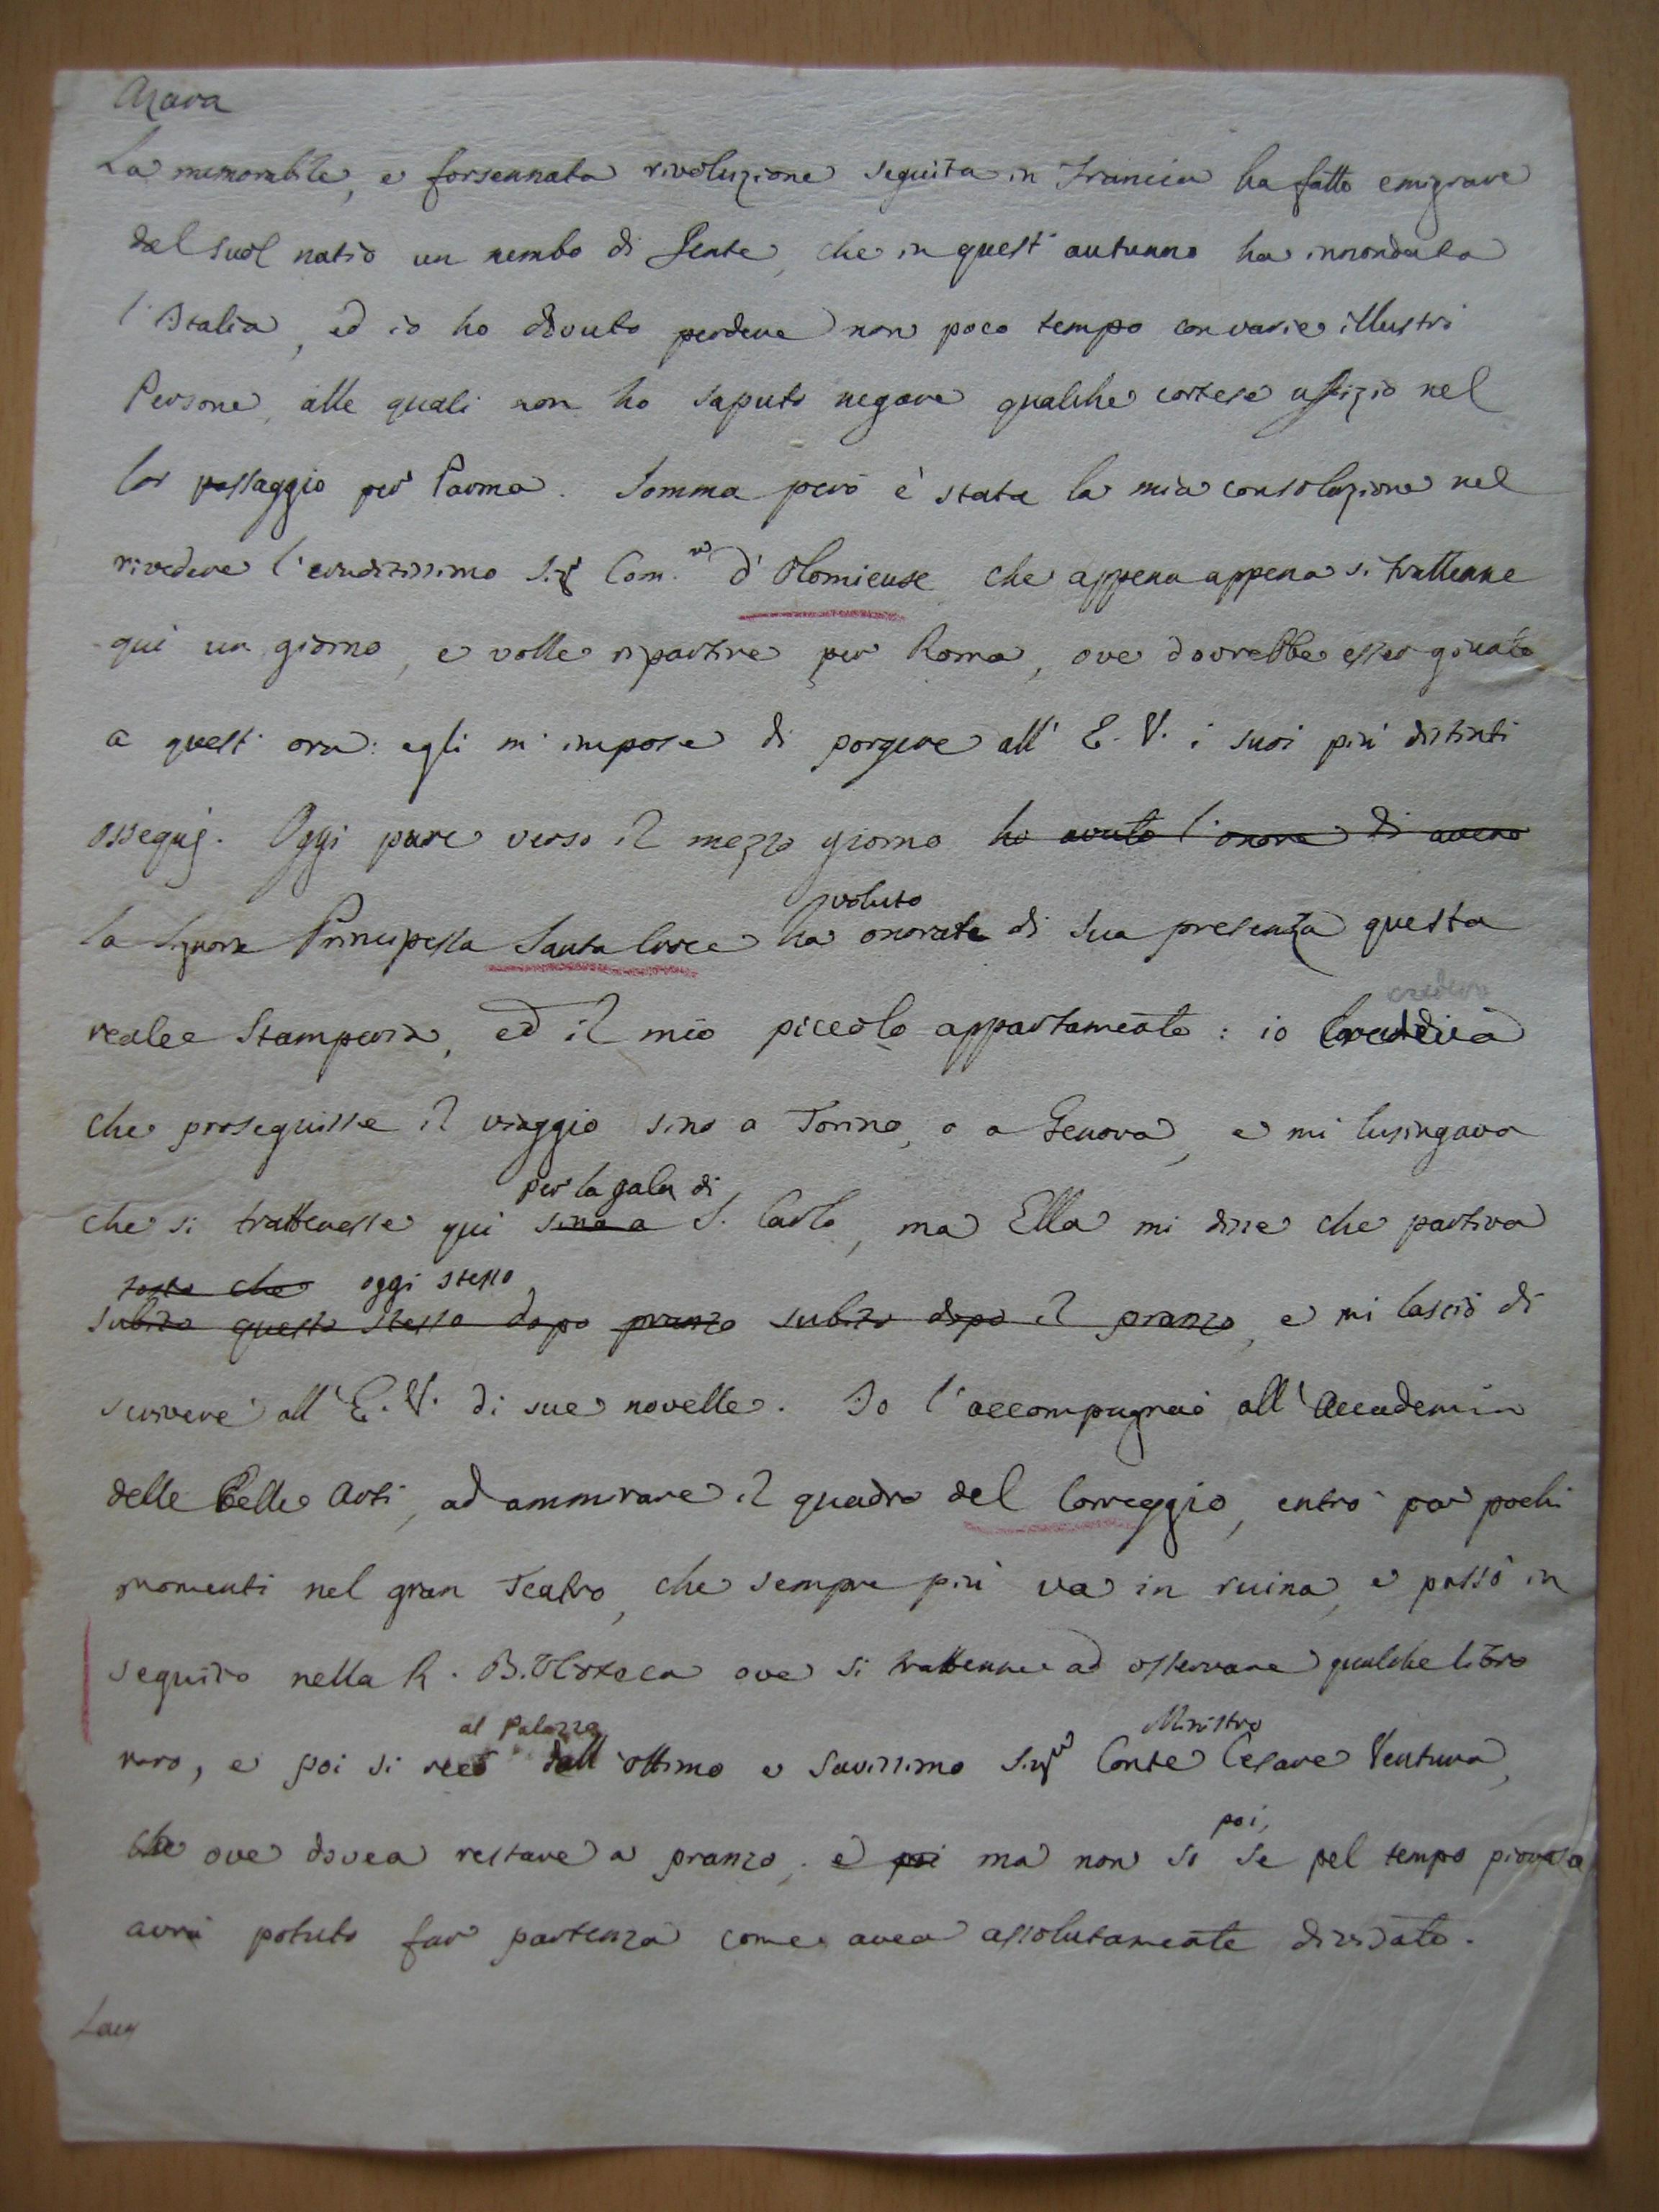 Azara
La memorabile, e forsennata rivoluzione seguita in Francia ha fatto emigrare
dal suol natio un nembo di Gente, che in quest' autunno ha innondata
l'Italia, ed io ho dovuto perdere non poco tempo con varie illustri
Persone, alle quali non ho saputo negare qualche cortese uffizio nel
lor passaggio per Parma. Somma però è stata la mia consolazione nel
rivedere l'eruditissimo Sig.r Com.re d'Olomieuse che appena appena si trattenne
qui un giorno, e volle ripartire per Roma, ove dovrebbe esser giunto
a quest' ora: egli m'impose di porgere all' E. V. i suoi più distinti
ossequj. Oggi pure verso il mezzo giorno ho avuto l'onore di avere
voluto
la Signora Principessa Santa Croce ha onorata di sua presenza questa
credeva
reale Stamperia, ed il mio piccolo appartamento: io credeva
che proseguisse il viaggio sino a Torino, o a Genova, e mi lusingava
per la gala di
che si trattenesse qui sino a S. Carlo, ma Ella mi disse che partiva
tosto che oggi stesso
subito questo stesso dopo pranzo subito dopo il pranzo, e mi lasciò di
scrivere all' E. V. di sue novelle. Io l'accompagnai all'Accademia
delle Belle Arti, ad ammirare il quadro del Correggio, entrò per pochi
momenti nel gran Teatro, che sempre più va in ruina, e passò in
seguito nella R. Biblioteca ove si trattenne ad osservare qualche libro
al Palazzo Ministro
raro, e poi si recò dall'ottimo e savissimo Sig.re Conte Cesare Ventura,
poi,
che ove dovea restare a pranzo; e poi ma non so se pel tempo piovoso
avrà potuto far partenza come avea assolutamente divisato.